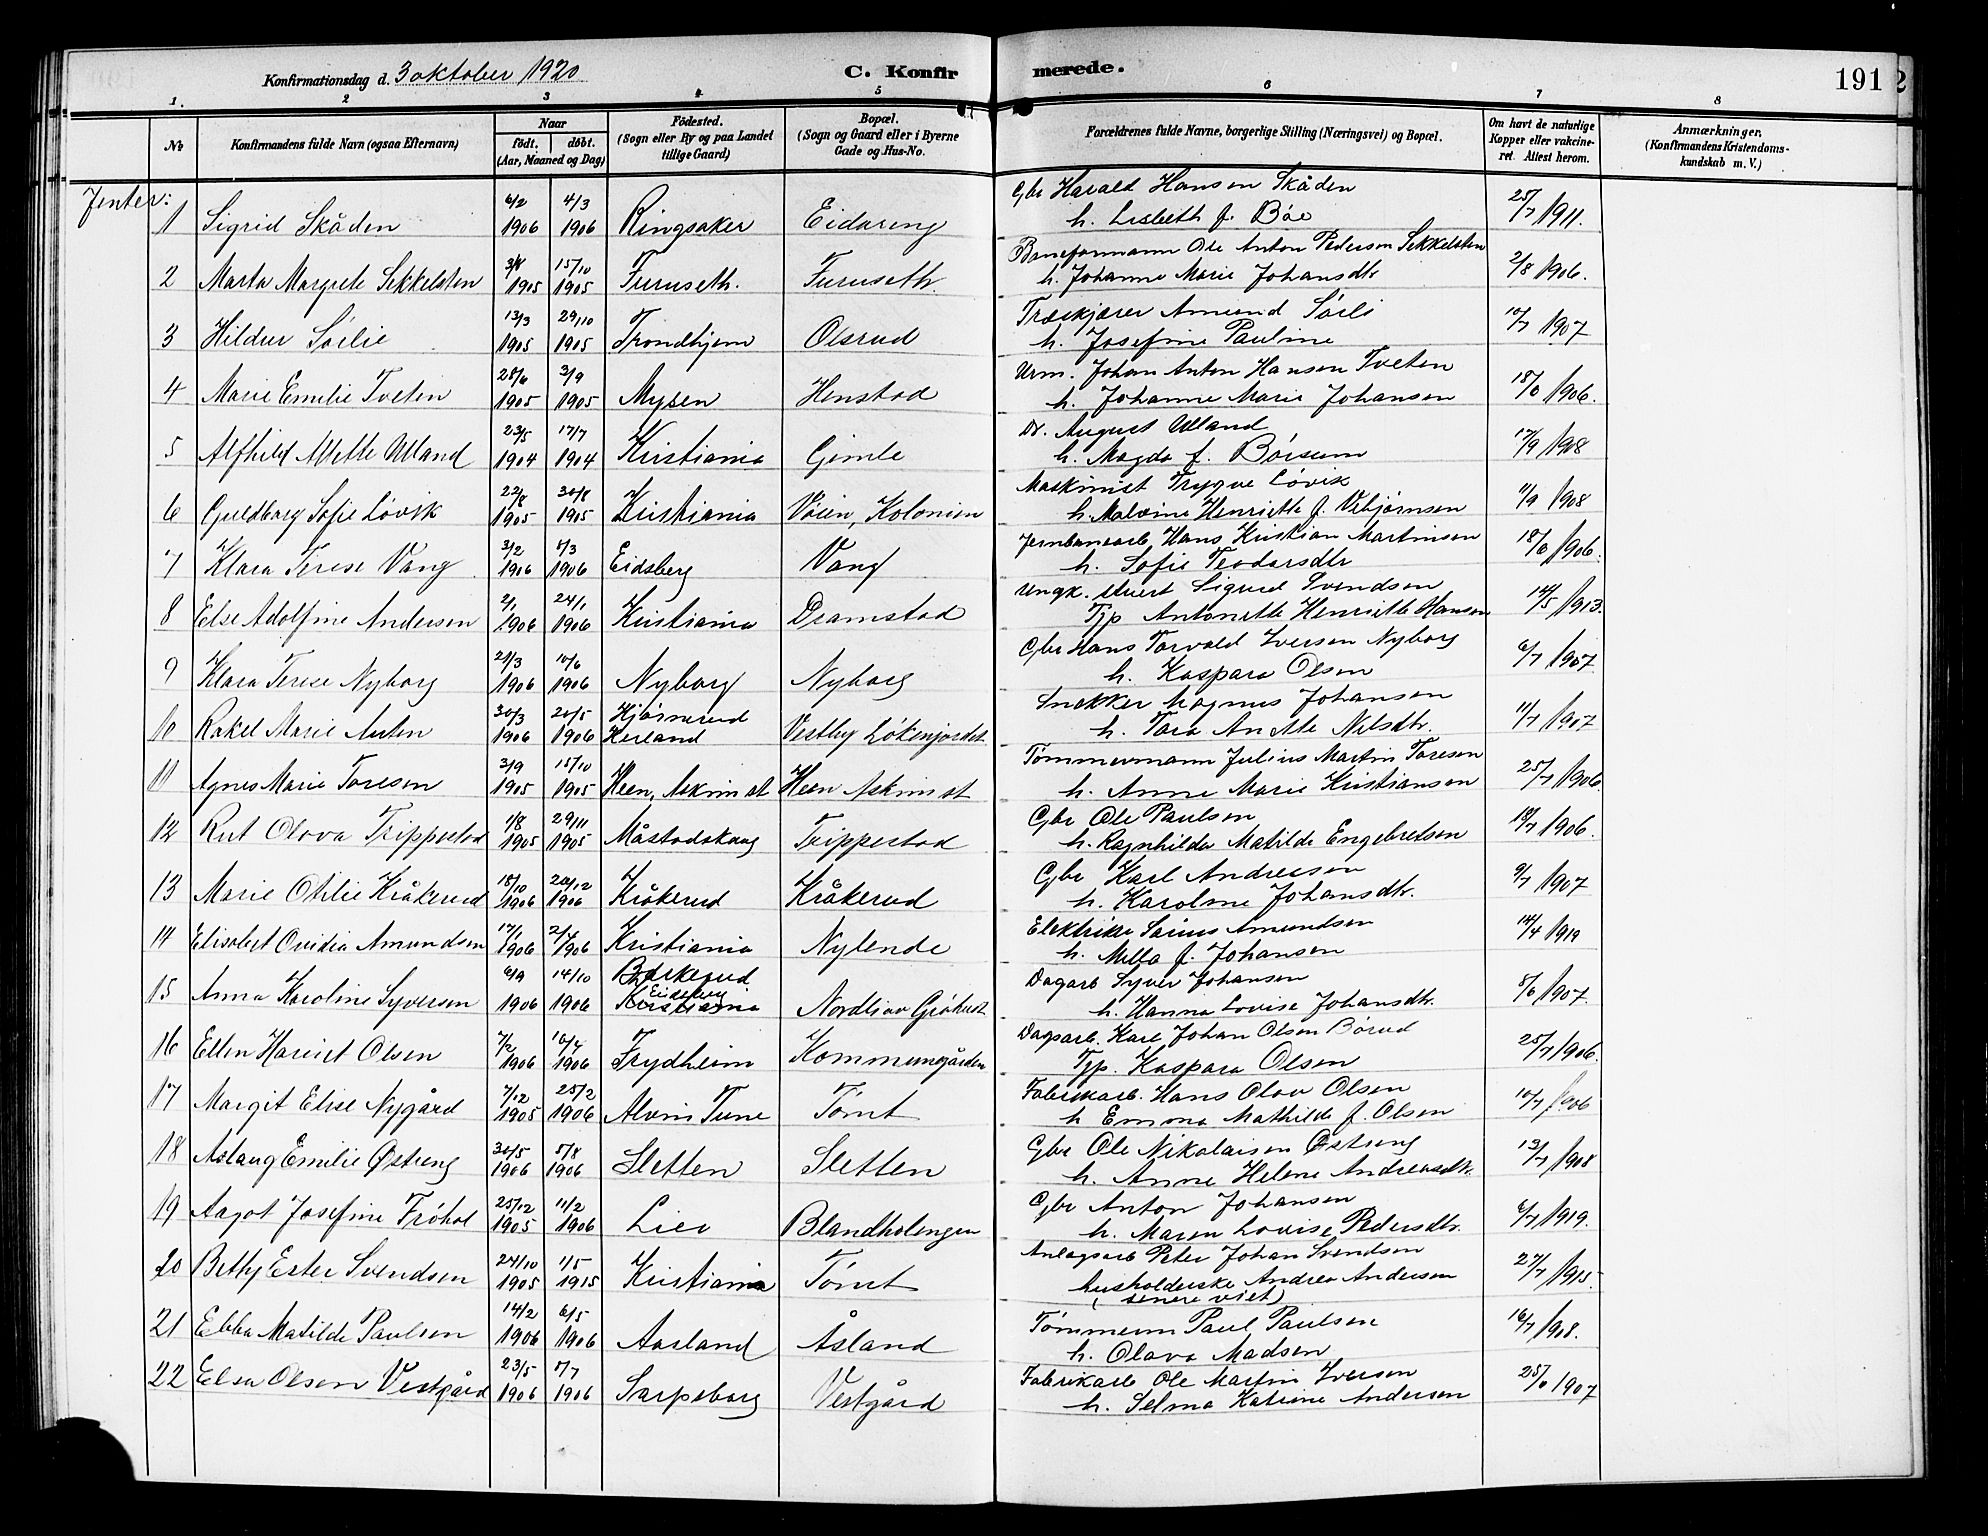 Konfirmationsdag d. 3 oktober 1920
C. Konfirmerede.
191
1. 2 3 4 5 6 7 8
No
Konfirmandens fulde Navn (ogsaa Efternavn)
Naar
født. døbt.
(Aar, Maaned og Dag)
Fødested.
(Sogn eller By og paa Landet
tillige Gaard)
Bopæl.
(Sogn og Gaard eller i Byerne
Gade og Hus-No.
Forældrenes fulde Navne, borgerlige Stilling (Næringsvei) og Bopæl.
Om havt de naturlige
Kopper eller vakcine-
ret. Attest herom.
Anmærkninger.
(Konfirmandens Kristendoms-
kundskab m. V.)
Jenter:
6/2 4/3 Gbr Harald Hansen Skåden
1 Sigrid Skåden 1906 1906 Ringsaker Eidareng h. Lisbeth f. Böe 25/7 1911.
15/10 Baneformann Ole Anton Pedersen Sekkelsten
2 Marta Margrete Sekkelsten 1905 1905 Furuseth. Furuseth. h. Johanne Marie Johansdtr 2/8 1906.
13/3 29/10 Træskjærer Amund Sörli
3 Hildur Sörlie 1905 1905 Trondhjem Olsrud h. Josefine Pauline 10/7 1907
28/6 3/9 Urm. Johan Anton Hansen Tveten
4 Marie Emilie Tveten 1905 1905 Mysen Henstad h. Johanne Marie Johansen 1906.
23/5 17/7 Dr. August Ulland
5 Alfhild Mette Ulland 1904 1904 Kristiania Gimle h. Magda f. Börsum 17/9 1908
22/8 30/8 Maskinist Trygve Lövik
6 Guldborg Sofie Lövik 1905 1905 Kristiania Vöien, Kolonien h. Malvine Henriette f. Vebjörnsen 11/9 1908
3/2 Jernbanearb Hans Kristian Martinsen
7 Klara Terese Vang 1906 1906 Eidsberg Vang h. Sofie Teodorsdtr 1906.
2/1 24/1 Ungk. Stuert Sigurd Svendsen
8 Else Adolfine Andersen 1906 1906 Kristiania Dramstad Tjp Antonette Henriette Hansen 14/5 1913.
21/3 10/6 Gbr Hans Torvald Iversen Nyborg
9 Klara Terese Nyborg 1906 1906 Nyborg Nyborg h. Kaspara Olsen 6/7 1907.
30/3 20/5 Hjörnerud Snekker Magnus Johansen
10 Rakel Marie Auten 1906 1906 Herland Vestby Lökenjordet h. Tora Anette Nilsdtr. 11/7 1907
3/9 15/10 Tömmermann Julius Martin Toresen
11 Agnes Marie Toresen 1905 1905 Heen, Askim st Heen Askim st h. Anne Marie Kristiansen 25/7 1906.
1/8 29/11 Gbr Ole Paulsen
12 Rut Olava Trippestad 1905 1905 Måstadskaug Trippestad h. Ragnhilda Matilde Engebretsen 18/7 1906.
18/10 20/12 Gbr Karl Andersen
13 Marie Otilie Kråkerud 1906 1906 Kråkerud Kråkerud h. Karoline Johansdtr. 9/7 1907
17/1 2/4 Elektriker Sarius Amundsen
14 Elisabet Ovidia Amundsen 1906 1906 Kristiania Nylende h. Milla f. Johansen 14/4 1919
6/9 14/10 Barkerud Dagarb Syver Johansen
15 Anna Karoline Syversen 1906 1906 Eidsberg Kristiania Nordli av Gråkust h. Hanna Lovise Johansdtr. 8/6 1907
7/2 10/4 Dagarb. Karl Johan Olsen Börud
16 Ellen Hariet Olsen 1906 1906 Frydheim Kommunegården Tjp. Kaspara Olsen 25/7 1906.
7/12 25/2 Fabrikarb. Hans Olav Olsen
17 Margit Elise Nygård 1905 1906 Alvim Tune Tomt h Emma Mathilde f. Olsen 10/7 1906
30/5 5/8 Gbr Ole Nikolaisen Østreng
18 Aslaug Emilie Østreng 1906 1906 Sletten Sletten h. Anne Helene Andreasdtr. 13/7 1908
25/12 11/2 Gbr Anton Johansen
19 Aagot Josefine Fröhol 1905 1906 Lier Blandholengen h. Maren Lovise Pedersdtr. 6/7 1919.
24/10 1/5 Anlægsarb Peter Johan Svendsen
20 Bethy Ester Svendsen 1905 1915 Kristiania Tomt husholderske Andrea Andersen 27/7 1915
(senere viet)
14/2 6/5 Tömmerm Paul Paulsen
21 Ebba Matilde Paulsen 1906 1906 Aasland Åsland h. Olava Madsen 16/7 1908.
23/5 Fabrikarb Ole Martin Iversen
22 Elsa Olsen Vestgård 1906 1906 Sarpsborg Vestgård h. Selma Katrine Andersen 1907